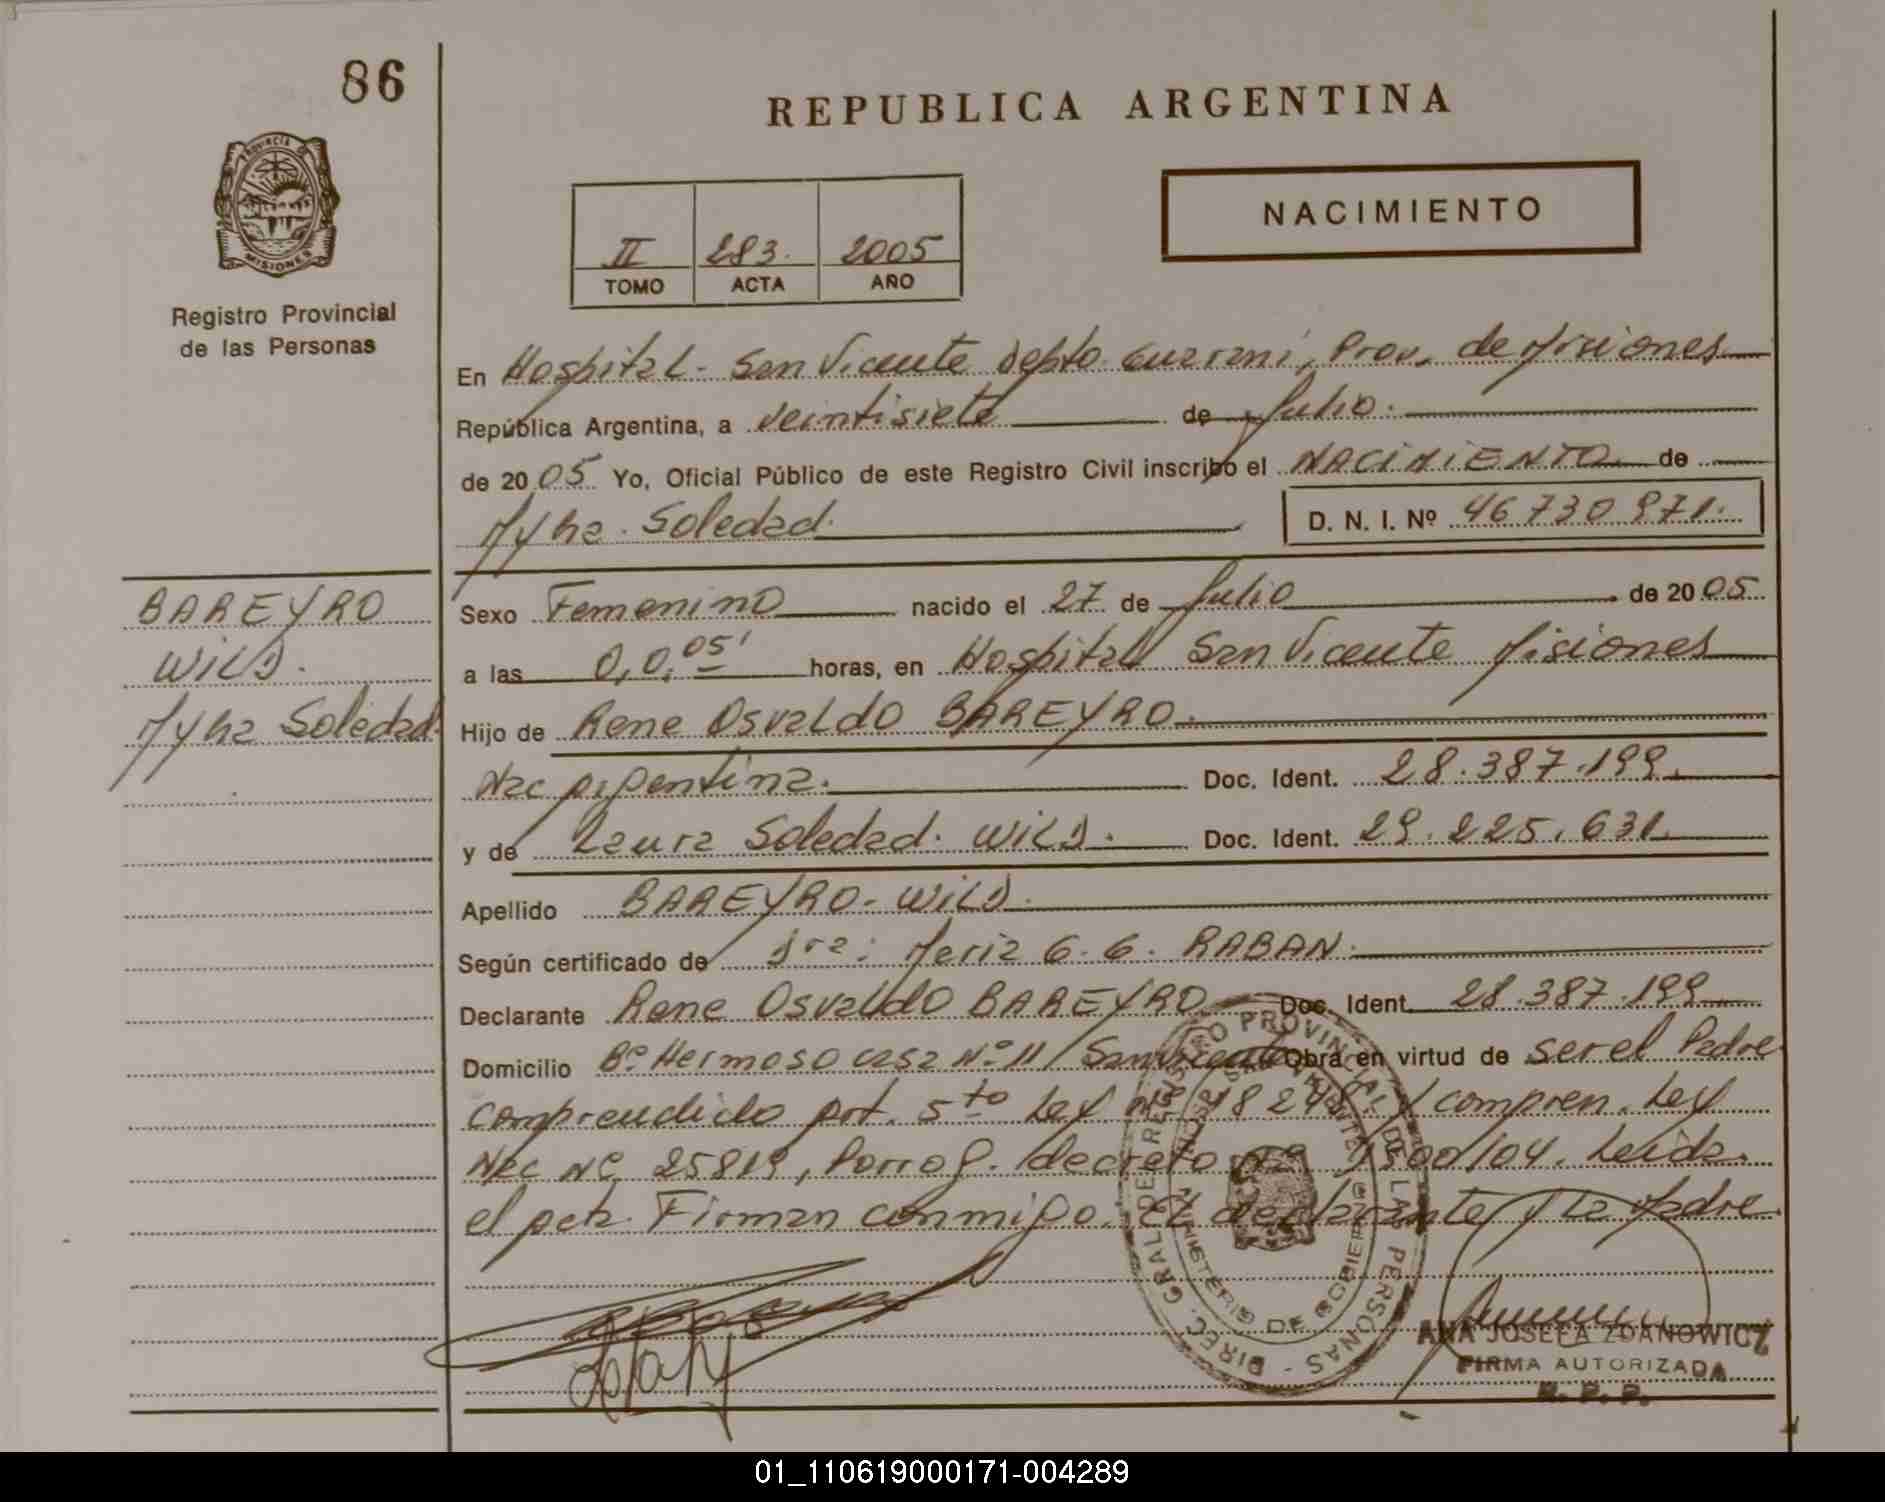 86
REPUBLICA ARGENTINA
NACIMIENTO
PROVINCIA DE
MISIONES
Registro Provincial
de las Personas
II 283. 2005
TOMO ACTA AÑO
En Hospital - San Vicente Depto Guarani, Prov. de Misiones
República Argentina, a veintisiete de Julio.
de 2005 Yo, Oficial Público de este Registro Civil inscribo el NACIMIENTO de
Soledad. D. N. I. Nº 46730971.
BAREYRO
WILD.
Soledad.
Sexo Femenino nacido el 27 de Julio de 2005
a las 0,0.05' horas, en Hospital San Vicente Misiones
Hijo de Rene Osvaldo BAREYRO.
Nac Argentina. Doc. Ident. 28.387.199.
y de Laura Soledad. WILD. Doc. Ident. 29.225.631
Apellido BAREYRO - WILD.
Según certificado de Dra: Maria G. G. RABAN.
Declarante Rene Osvaldo BAREYRO Doc. Ident. 28.387.199
Domicilio Bº Hermoso casa Nº 11 / San Vicente Obra en virtud de ser el Padre
comprendido Art. 5to Ley Nº 18248 y compren. Ley
Nac Nº 25819, Prorrog. decreto Nº 1500/04. Leida
el acta. Firman conmigo. El declarante y la Madre
DIREC. GRAL DE REGISTRO PROVINCIAL DE LAS PERSONAS
MINISTERIO DE GOBIERNO
ANA JOSEFA ZDANOWICZ
FIRMA AUTORIZADA
R. P. P.
01_110619000171-004289